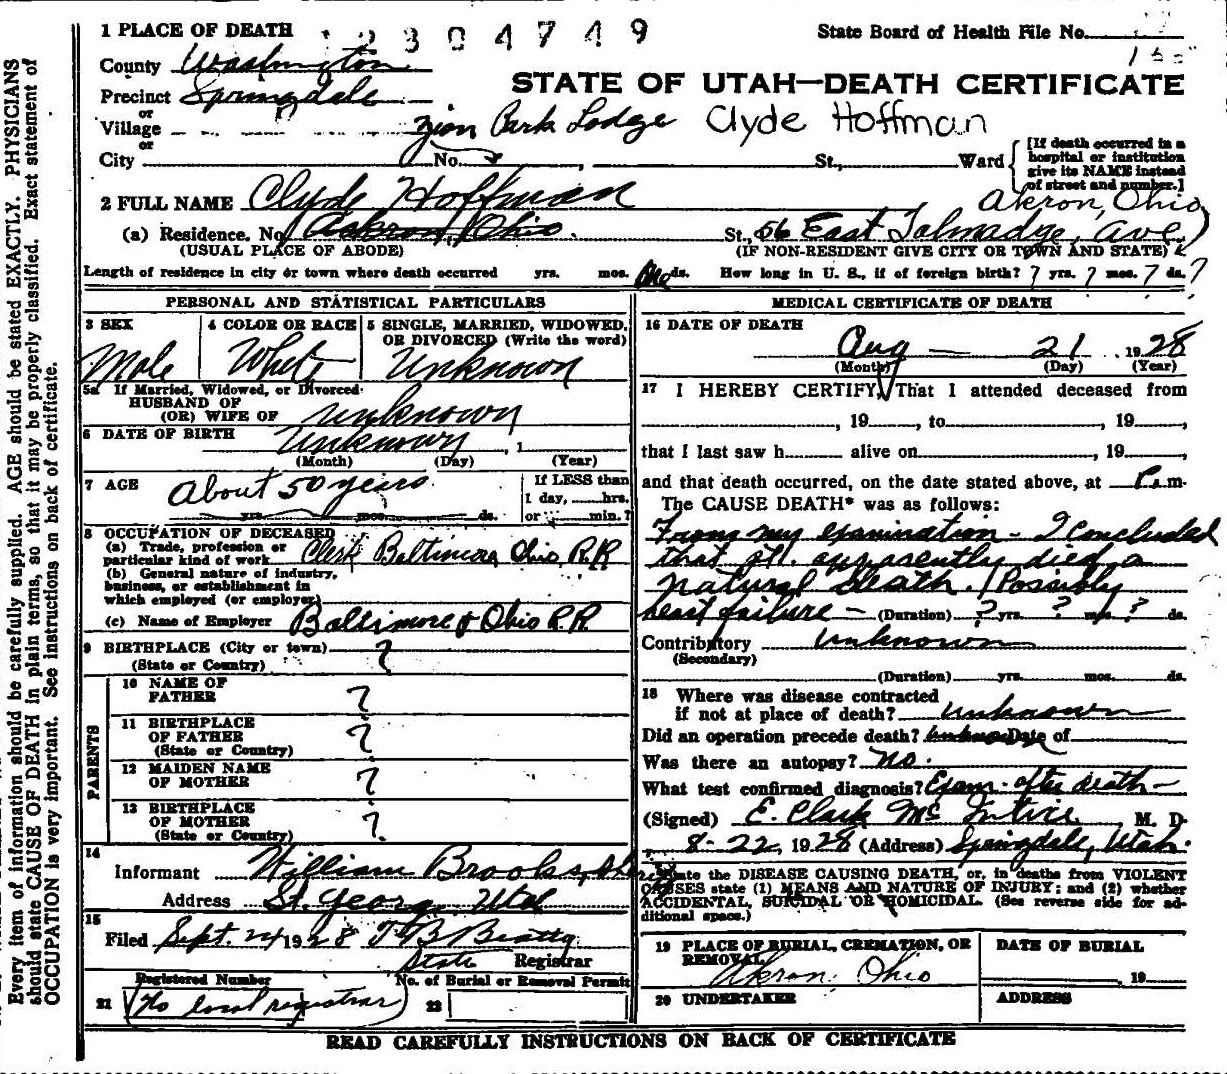 1 PLACE OF DEATH 2304749 State Board of Health File No.
County Washington
STATE OF UTAH—DEATH CERTIFICATE
Precinct Springdale
or
Village Zion Park Lodge Clyde Hoffman
or
City No. St., Ward
[If death occurred in a hospital or institution give its NAME instead of street and number.]
2 FULL NAME Clyde Hoffman Akron, Ohio
(a) Residence. No. Akron, Ohio. St., 56 East Talmadge, Ave)
(USUAL PLACE OF ABODE) (IF NON-RESIDENT GIVE CITY OR TOWN AND STATE)
Length of residence in city or town where death occurred yrs. mos. One ds. How long in U. S., if of foreign birth? ? yrs. ? mos. ? ds. ?
PERSONAL AND STATISTICAL PARTICULARS
3 SEX
Male
4 COLOR OR RACE
White
5 SINGLE, MARRIED, WIDOWED,
OR DIVORCED (Write the word)
Unknown
5a If Married, Widowed, or Divorced
HUSBAND OF
(OR) WIFE OF unknown
6 DATE OF BIRTH Unknown, 1
(Month) (Day) (Year)
7 AGE About 50 years
yrs. mos. ds.
If LESS than
1 day, hrs.
or min. ?
8 OCCUPATION OF DECEASED
(a) Trade, profession or
particular kind of work Clerk Baltimore Ohio R.R
(b) General nature of industry,
business, or establishment in
which employed (or employer)
(c) Name of Employer Baltimore & Ohio R.R
9 BIRTHPLACE (City or town) ?
(State or Country)
PARENTS
10 NAME OF
FATHER ?
11 BIRTHPLACE
OF FATHER ?
(State or Country)
12 MAIDEN NAME
OF MOTHER ?
13 BIRTHPLACE
OF MOTHER ?
(State or Country)
14
Informant William Brooks, sheriff
Address St. George Utah
15
Filed Sept. 24 1928 T B Beatty
State Registrar
Registered Number No. of Burial or Removal Permit
21 (No local registrar) 22
MEDICAL CERTIFICATE OF DEATH
16 DATE OF DEATH
Aug — 21, 1928
(Month) (Day) (Year)
17 I HEREBY CERTIFY, That I attended deceased from
, 19 , to , 19 ,
that I last saw h alive on , 19 ,
and that death occurred, on the date stated above, at P.m.
The CAUSE DEATH* was as follows:
From my examination - I concluded
that pt. apparently died a
natural death. (Possibly
heart failure — (Duration) ? yrs. ? mos. ? ds.
Contributory unknown
(Secondary)
(Duration) yrs. mos. ds.
18 Where was disease contracted
if not at place of death? unknown
Did an operation precede death? unknown Date of
Was there an autopsy? No.
What test confirmed diagnosis? Exam. after death —
(Signed) E. Clark McIntire, M. D.
8-22, 1928 (Address) Springdale, Utah.
*State the DISEASE CAUSING DEATH, or, in deaths from VIOLENT
CAUSES state (1) MEANS AND NATURE OF INJURY; and (2) whether
ACCIDENTAL, SUICIDAL OR HOMICIDAL. (See reverse side for ad-
ditional space.)
19 PLACE OF BURIAL, CREMATION, OR
REMOVAL
Akron. Ohio
DATE OF BURIAL
, 19
20 UNDERTAKER ADDRESS
READ CAREFULLY INSTRUCTIONS ON BACK OF CERTIFICATE
Every item of information should be carefully supplied. AGE should be stated EXACTLY. PHYSICIANS
should state CAUSE OF DEATH in plain terms, so that it may be properly classified. Exact statement of
OCCUPATION is very important. See instructions on back of certificate.